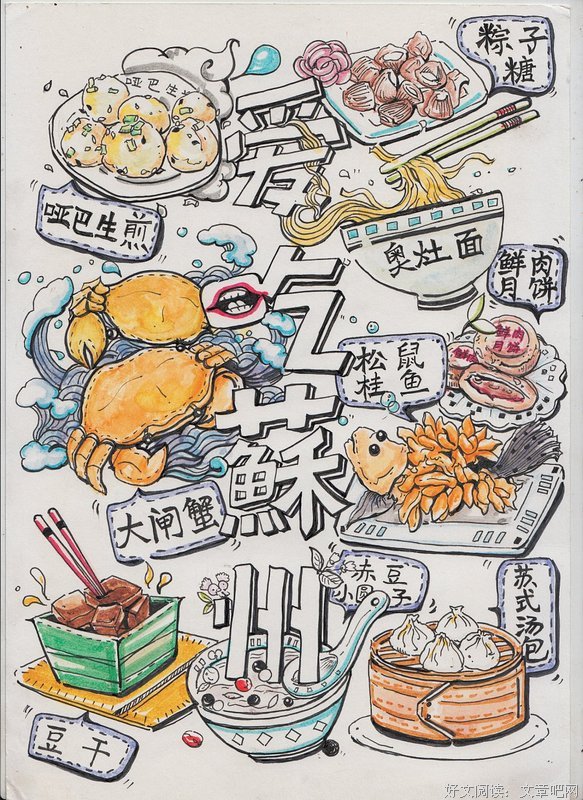 粽子
糖
哑巴生
哑巴生煎
爱
吃
蘇
州
奥灶面
鲜肉
月饼
鲜肉
月饼
松鼠
桂鱼
大闸蟹
赤豆
小圆子
苏式汤包
豆干
好文阅读：文章吧网